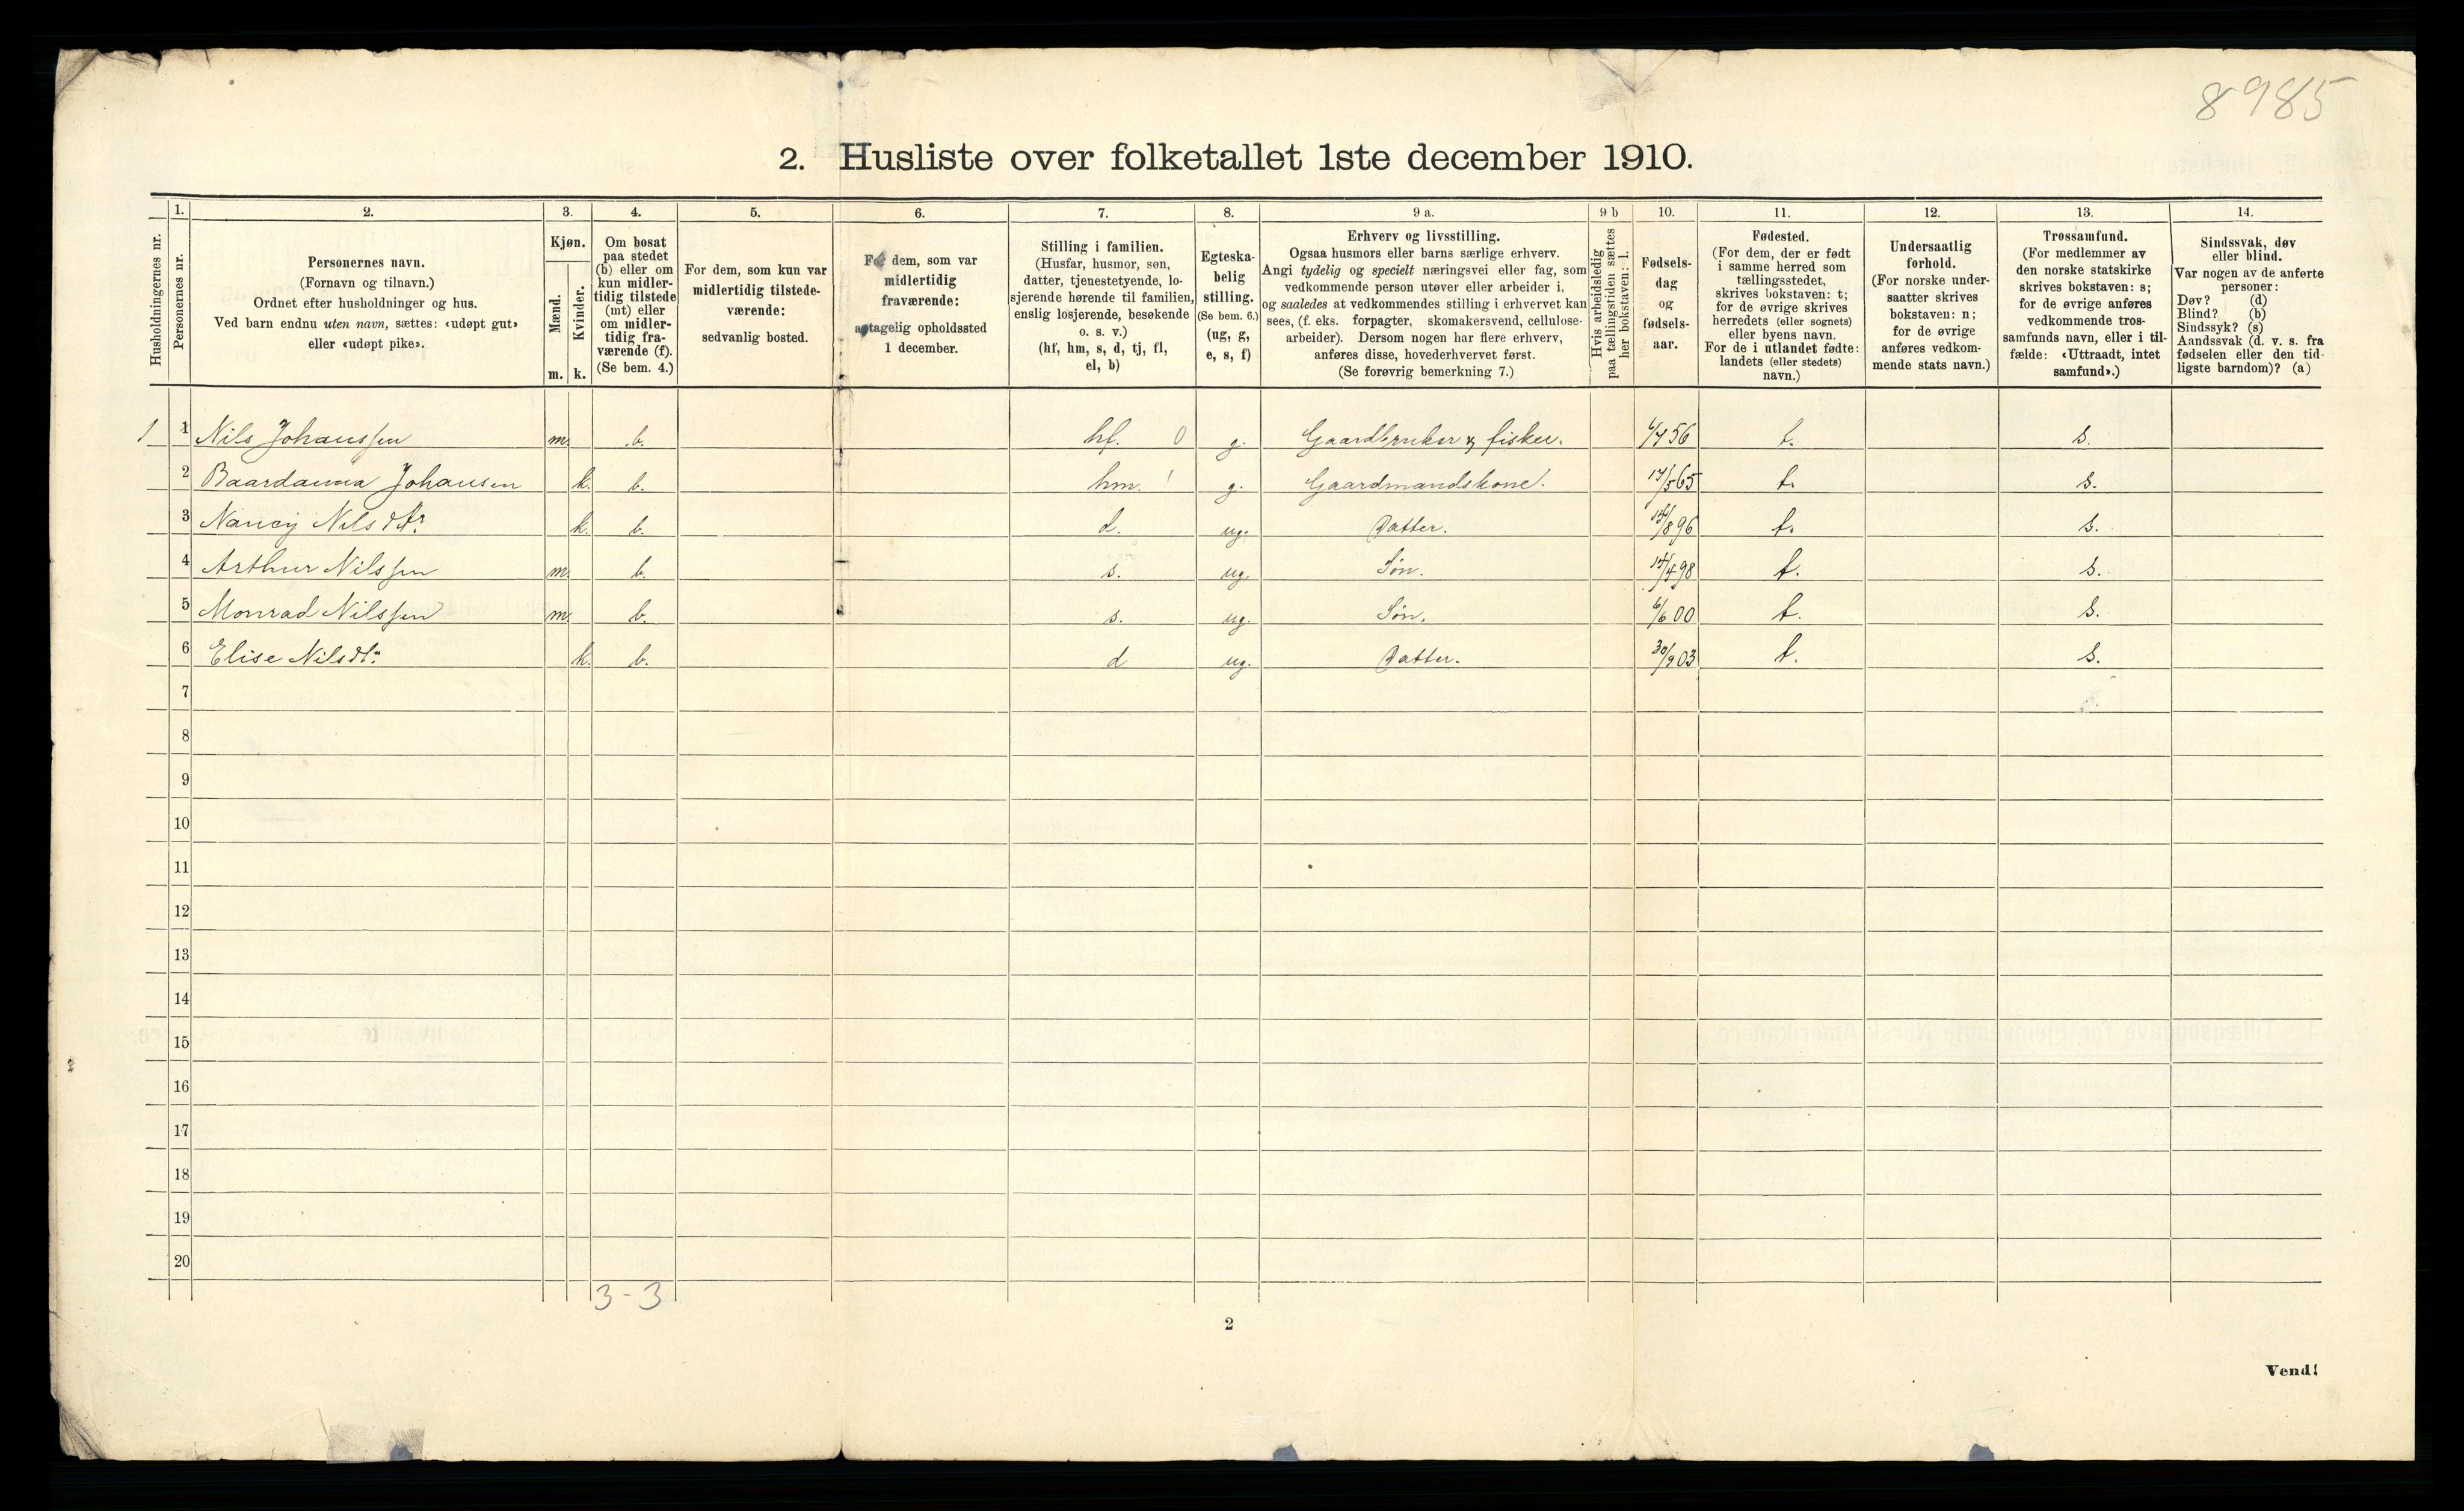 8985
2. Husliste over folketallet 1ste december 1910.
Husholdningernes nr.
1.
Personernes nr.
2.
Personernes navn.
(Fornavn og tilnavn.)
Ordnet efter husholdninger og hus.
Ved barn endnu uten navn, sættes: «udøpt gut»
eller «udøpt pike».
3.
Kjøn.
Mænd.
Kvinder.
m. k.
4.
Om bosat
paa stedet
(b) eller om
kun midler-
tidig tilstede
(mt) eller
om midler-
tidig fra-
værende (f).
(Se bem. 4.)
5.
For dem, som kun var
midlertidig tilstede-
værende:
sedvanlig bosted.
6.
For dem, som var
midlertidig
fraværende:
antagelig opholdssted
1 december.
7.
Stilling i familien.
(Husfar, husmor, søn,
datter, tjenestetyende, lo-
sjerende hørende til familien,
enslig losjerende, besøkende
o. s. v.)
(hf, hm, s, d, tj, fl,
el, b)
8.
Egteska-
belig
stilling.
(Se bem. 6.)
(ug, g,
e, s, f)
9 a.
Erhverv og livsstilling.
Ogsaa husmors eller barns særlige erhverv.
Angi tydelig og specielt næringsvei eller fag, som
vedkommende person utøver eller arbeider i,
og saaledes at vedkommendes stilling i erhvervet kan
sees, (f. eks. forpagter, skomakersvend, cellulose-
arbeider). Dersom nogen har flere erhverv,
anføres disse, hovederhvervet først.
(Se forøvrig bemerkning 7.)
9 b
Hvis arbeidsledig
paa tællingstiden sættes
her bokstaven: l.
10.
Fødsels-
dag
og
fødsels-
aar.
11.
Fødested.
(For dem, der er født
i samme herred som
tællingsstedet,
skrives bokstaven: t;
for de øvrige skrives
herredets (eller sognets)
eller byens navn.
For de i utlandet fødte:
landets (eller stedets)
navn.)
12.
Undersaatlig
forhold.
(For norske under-
saatter skrives
bokstaven: n;
for de øvrige
anføres vedkom-
mende stats navn.)
13.
Trossamfund.
(For medlemmer av
den norske statskirke
skrives bokstaven: s;
for de øvrige anføres
vedkommende tros-
samfunds navn, eller i til-
fælde: «Uttraadt, intet
samfund».)
14.
Sindssvak, døv
eller blind.
Var nogen av de anførte
personer:
Døv? (d)
Blind? (b)
Sindssyk? (s)
Aandssvak (d. v. s. fra
fødselen eller den tid-
ligste barndom)? (a)
1 1 Nils Johanssen m. b. hf. 0 g. Gaardbruker & fisker. 56 t. s.
2 Baardanna Johansen k. b. hm. 1 g. Gaardmandskone. 17/5 65 t. s.
3 Nancy Nilsdtr k. b. d. ug. Datter. 8 96 t. s.
4 Arthur Nilssen m. b. s. ug. Søn. 98 t. s.
5 Monrad Nilssen m. b. s. ug. Søn. 6/6 00 t. s.
6 Elise Nilsdtr k. b. d ug. Datter. 30/9 03 t. s.
7
8
9
10
11
12
13
14
15
16
17
18
19
20
3-3
2
Vend!